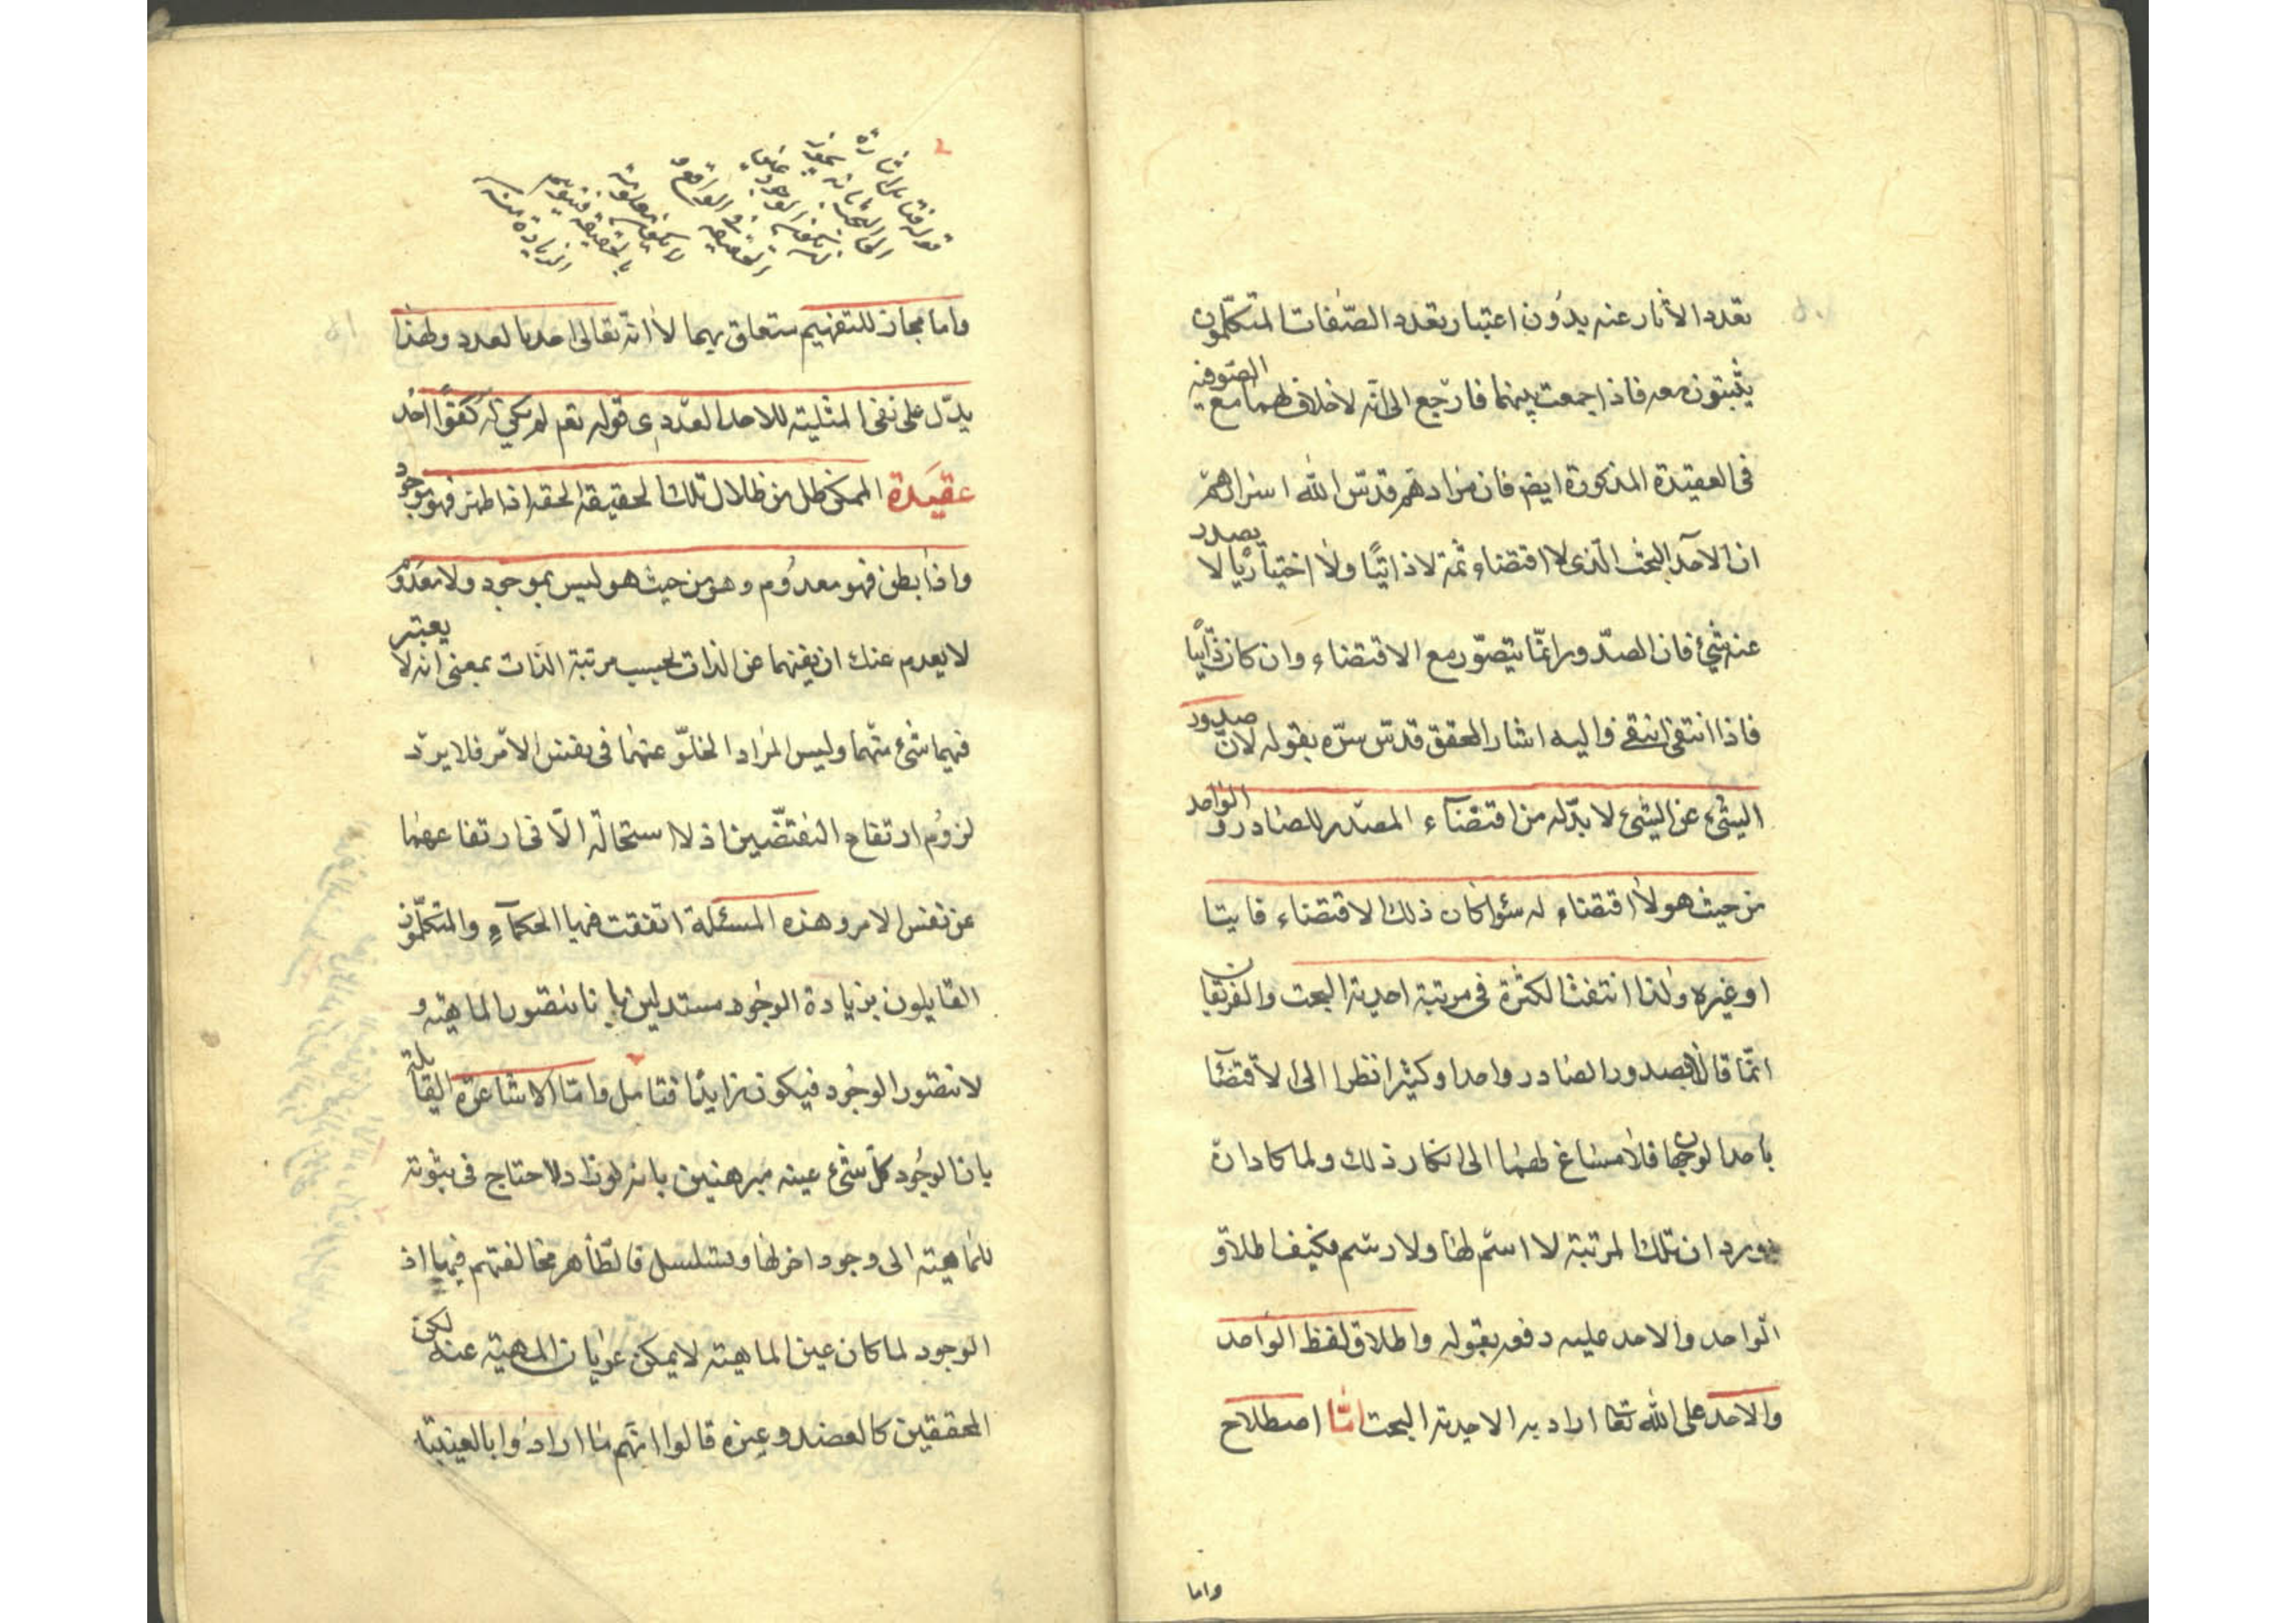 تعدد الاثار عنه بدون اعتبار تعدد الصفات المتكلمون
يثبتون معه فاذا جمعت بينهما فارجع الى انه لا خلاف لهما مع الصوفيه
فى العقيدة المذكورة ايض فان مرادهم قدس الله اسرارهم
ان الاحد البحت الذى لا اقتضاء ثمة لا ذاتيا ولا اختياريا لا يصدر
عنه شئ فان الصدور انما يتصور مع الاقتضاء وان كان ذاتيا
فاذا انتفى انتفى واليه اشار المحقق قدس سره بقوله لان صدور
الشئ عن الشئ لا بد له من اقتضاء المصدر للصادر والواحد
من حيث هو لا اقتضاء له سؤا كان ذلك الاقتضاء
او غيره ولذا انتفت الكثرة فى مرتبة احدية البحت والفريقان
انما قالا بصدور الصادر واحدا وكثيرا نظرا الى الاقتضا
باحد الوجهان فلا مساغ لهما الى انكار ذلك ولما كاد ان
يورد ان تلك المرتبة لا اسم لها ولا رسم فكيف اطلاق
الواحد والاحد عليه دفعه بقوله واطلاق لفظ الواحد
والاحد على الله تعا اراد به الاحدية البحت اما اصطلاح
واما
قوله فتامل اشارة
واما مجاز للتفهيم متعلق بهما لا انه تعالى احد بالعدد ولهذا
يدل على نفى المثلية للاحد العددى قوله تعم لم يكن له كفوا احد
عقيدة الممكن ظل من ظلال تلك الحقيقة الحقه اذا ظهر فهو موجود
واذا بطن فهو معدوم وهو من حيث هو ليس بموجود ولا معدوم
لا يعدم عنك ان نفيهما عن الذات بحسب مرتبة الذات بمعنى انه لا يعتبر
فيهما شئ منهما وليس المراد الخلو عنهما فى نفس الامر فلا يرد
لزوم ارتفاع النقيضين اذ لا استحالة الا فى ارتفاعهما
عن نفس الامر وهذه المسئلة اتفقت فيها الحكماء والمتكلمون
القايلون بزيادة الوجود مستدلين بانا نتصور الماهية و
لا نتصور الوجود فيكون زايدا فتامل واما الاشاعرة القايلة
بان الوجود كل شئ عينه مبرهنين بانه لو زاد لاحتاج فى ثبوته
للماهية الى وجود اخر لها ويتسلسل فالظاهر مخالفتهم فيها اذ
الوجود لما كان عين الماهية لا يمكن عريان المهية عنه لكن
المحققين كالعضد وغيره قالوا انهم ما ارادوا بالعينية